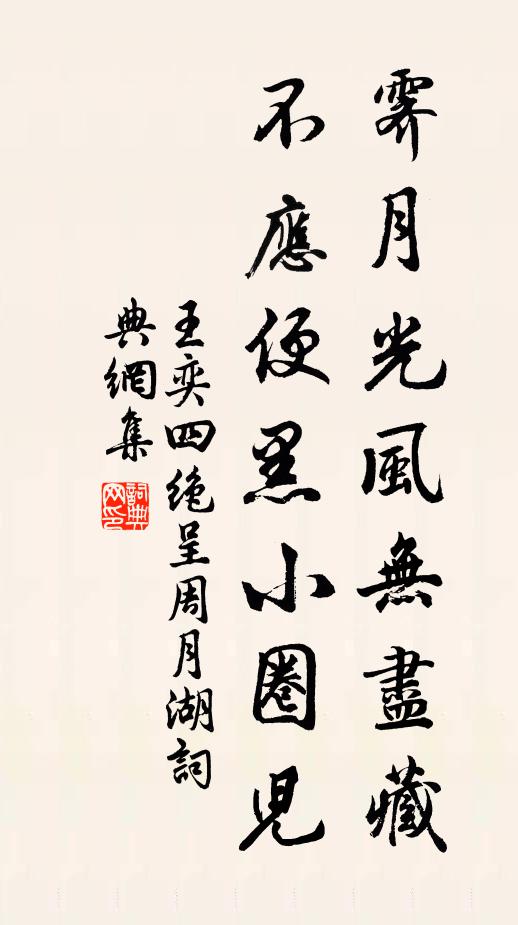 霽月光風無盡藏
不應便黑小圈児
王奕四絶呈周月湖詞
典網集
詞典網印